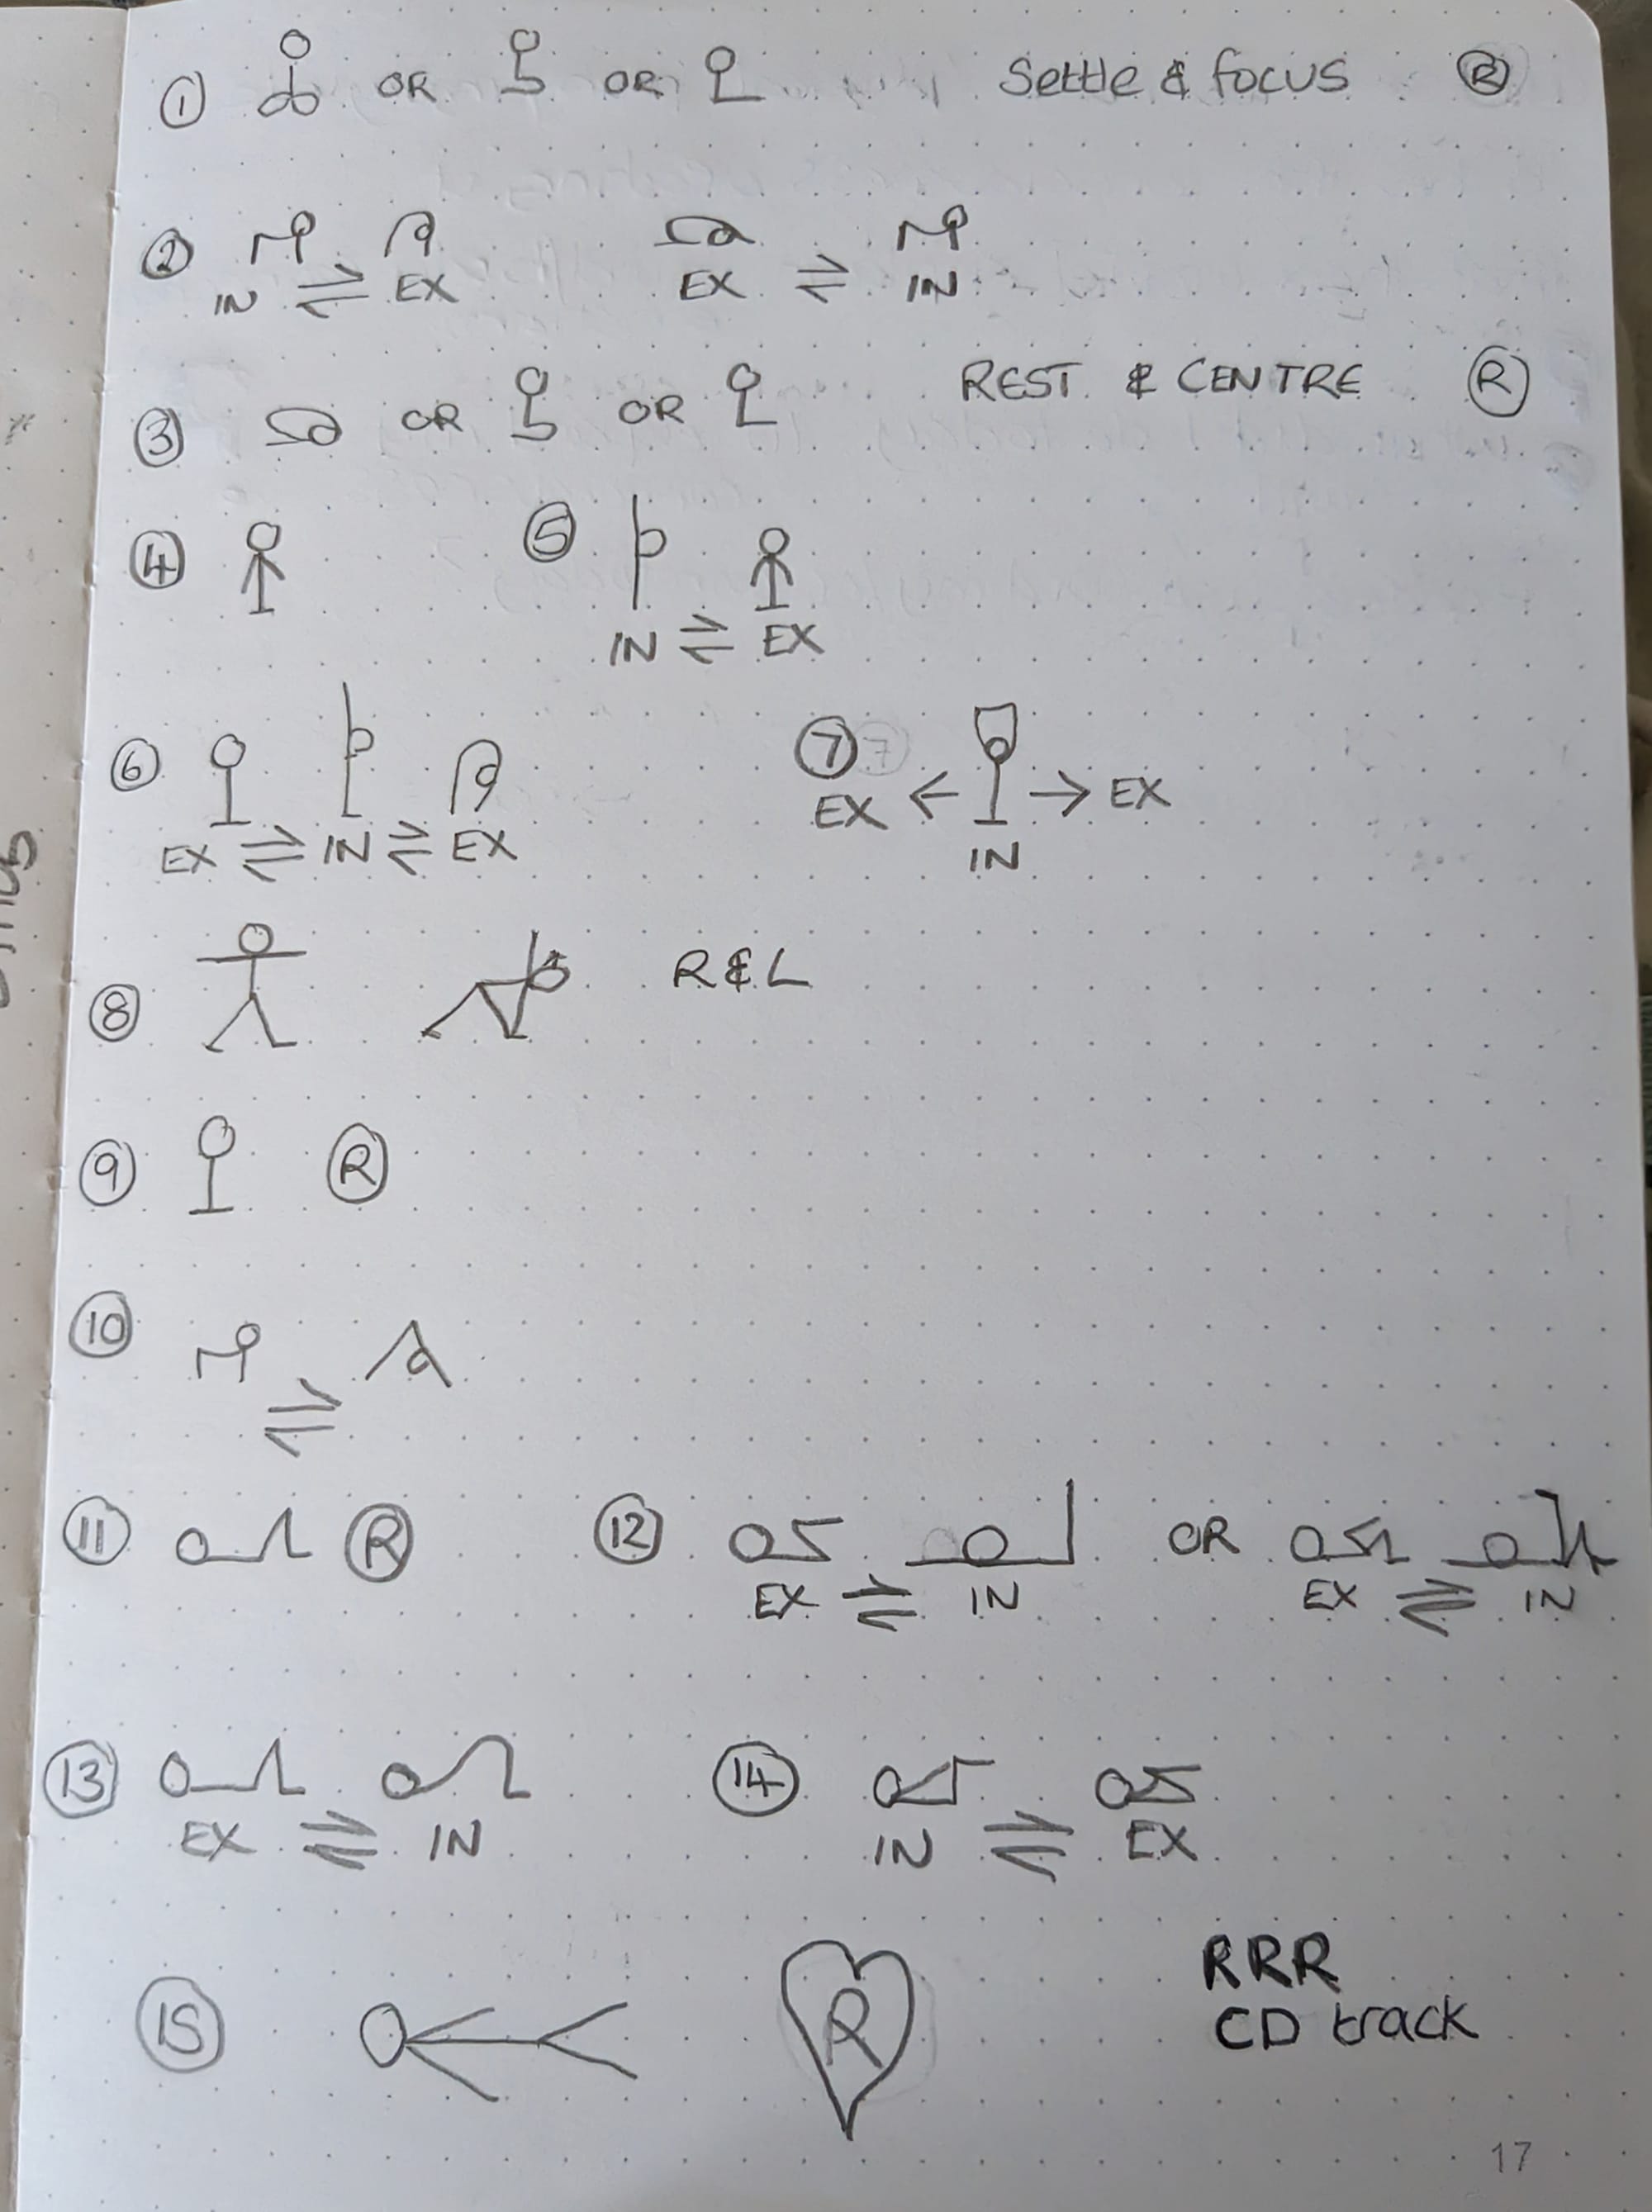 ① OR OR Settle & focus Ⓡ
② IN EX EX IN
③ OR OR REST & CENTRE Ⓡ
④ ⑤
IN EX
⑥ ⑦
EX IN EX EX EX
IN
⑧ R & L
⑨ Ⓡ
⑩
⑪ Ⓡ ⑫ OR
EX IN EX IN
⑬ ⑭
EX IN IN EX
⑮ R RRR
CD track
17